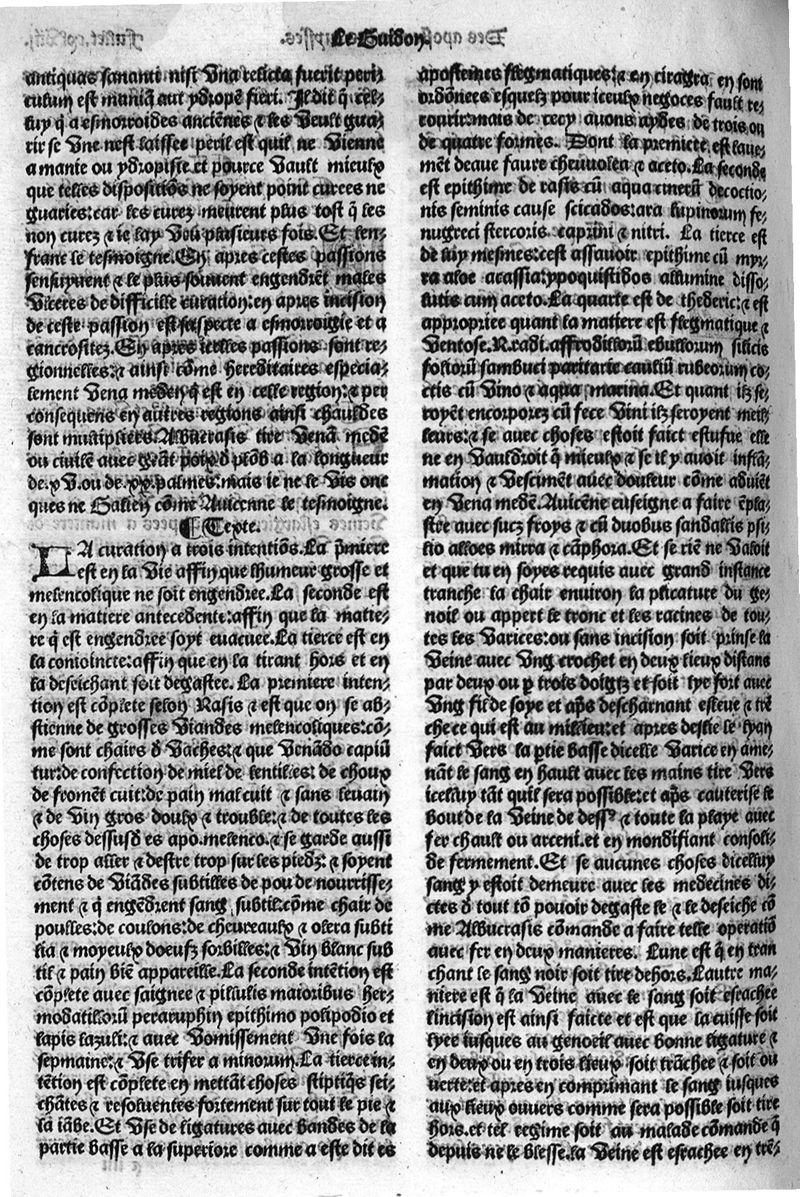 Le Guidon.
antiquas sananti nisi vna relicta fuerit peri/
culum est maniā aut ydropē fieri. Il dit q̄ cel/
luy q̄ a esmorroides anciēnes ⁊ les veult gua/
rir se vne nest laissee peril est quil ne vienne
a manie ou ydropisie. et pource vault mieulx
que telles dispositiōs ne soyent point curees ne
guaries: car les curez meurent plus tost q̄ les
non curez ⁊ ie lay veu plusieurs fois. Et len/
franc le tesmoigne. En apres cestes passions
sensuyuent ⁊ le plus souuent engendrēt males
vlceres de difficille curation: en apres incision
de ceste passion est suspecte a esmorroigie et a
cancrositez. En apres icelles passions sont re/
gionnelles: ⁊ ainsi cōme hereditaires especia/
lement vena meden q̄ est en celle region: ⁊ per
consequens en autres regions ainsi chauldes
sont multipliers. Albucrasis tire venā medē
ou ciuile auec geāt poix d̄ plōb a la longueur
de. xv. ou de. xx. palmes: mais ie ne le vis onc
ques ne Galien cōme Auicenne le tesmoigne.
¶ Texte.
LA curation a trois intentiōs. La p̄miere
est en la vie affin que lhumeur grosse et
melencolique ne soit engendree. La seconde est
en la matiere antecedente: affin que la matie/
re q̄ est engendree soyt euacuee. La tierce est en
la conioincte: affin que en la tirant hors et en
la deseichant soit degastee. La premiere inten/
tion est cōplete selon Rasis ⁊ est que on se ab/
stienne de grosses viandes melencoliques: cō/
me sont chairs d̄ vaches: ⁊ que venādo capiū
tur: de confection de miel de lentilles: de choux
de fromēt cuit: de pain mal cuit ⁊ sans leuain
⁊ de vin gros doulx ⁊ trouble: ⁊ de toutes les
choses dessusd es apo. melenco. ⁊ se garde aussi
de trop aller ⁊ destre trop sur les piedz: ⁊ soyent
cōtens de viādes subtilles de pou de nourrisse/
ment ⁊ q̄ engendrent sang subtil: cōme chair de
poulles: de coulons: de cheureaulx ⁊ olera subti
lia ⁊ moyeulx doeufz sorbilles: ⁊ vin blanc sub
til ⁊ pain biē appareille. La seconde intētion est
cōplete auec saignee ⁊ pillulis maioribus her/
modatillorū peraruphin epithimo polipodio et
lapis lazuli: ⁊ auec vomissement vne fois la
sepmaine: ⁊ vse trifer a minorum. La tierce in/
tētion est cōplete en mettāt choses stiptiq̄s sei/
chātes ⁊ resoluentes fortement sur tout le pie ⁊
la iābe. Et vse de ligatures auec bandes de la
partie basse a la superiore comme a este dit es
apostemes flegmatiques: ⁊ en ciragra en sont
ordōnees esquelz pour iceulx negoces fault re/
courir: mais de cecy auons aydes de trois ou
de quatre formes. Dont la premiere est laue/
mēt deaue faure cheuuolea ⁊ aceto. La seconde
est epithime de rasis cū aqua cinerū decoctio/
nis seminis cause scicados: ara lupinorum fe/
nugreci stercoris caprini ⁊ nitri. La tierce est
de luy mesmes: cest assauoir epithime cū myr/
ra aloe acassia: ypoquistidos allumine disso/
lutis cum aceto. La quarte est de thederic: ⁊ est
appropriee quant la matiere est flegmatique ⁊
ventose. R. radi. affrodillorū ebullorum silicis
foliorū sambuci paritarie cauliū rubeorum co/
ctis cū vino ⁊ aqua marina. Et quant ilz se/
royēt encorporez cū fece vini ilz seroyent meil/
leurs: ⁊ se auec choses estoit faict estufue elle
ne en vauldroit q̄ mieulx ⁊ se il y auoit inflā/
mation ⁊ vesciment auec douleur cōme aduiēt
en vena medē. Auicēne enseigne a faire ēpla/
stre auec sucz froys ⁊ cū duobus sandallis psi/
lio alloes mirra ⁊ cāphora. Et se riē ne valoit
et que tu en soyes requis auec grand instance
tranche la chair enuiron la plicature du ge/
noil ou appert le tronc et les racines de tou/
tes les varices: ou sans incision soit prinse la
veine auec vng crochet en deux lieux distans
par deux ou p̱ trois doigtz et soit lye fort auec
vng fil de soye et ap̄s descharnant esleue ⁊ trē
che ce qui est au millieu: et apres deslie le lyan
faict vers la p̱tie basse dicelle varice en ame/
nāt le sang en hault auec les mains tire vers
icelluy tāt quil sera possible: et ap̄s cauterise le
bout de la veine de dess⁹ ⁊ toute la playe auec
fer chault ou arceni. et en mondifiant consoli/
de fermement. Et se aucunes choses dicelluy
sang y estoit demeure auec les medecines di/
ctes d̄ tout tō pouoir degaste le ⁊ le deseiche cō
me Albucrasis cōmande a faire telle operatiō
auec fer en deux manieres. Lune est q̄ en tran
chant le sang noir soit tire dehors. Lautre ma/
niere est q̄ la veine auec le sang soit esrachee
lincision est ainsi faicte et est que la cuisse soit
lyee iusques au genoeil auec bonne ligature ⁊
en deux ou en trois lieux soit trāchee ⁊ soit ou
uerte: et apres en comprimant le sang iusques
aux lieux ouuers comme sera possible soit tire
hors. et tel regime soit au malade cōmande q̄
depuis ne le blesse. la veine est esrachee en trē/